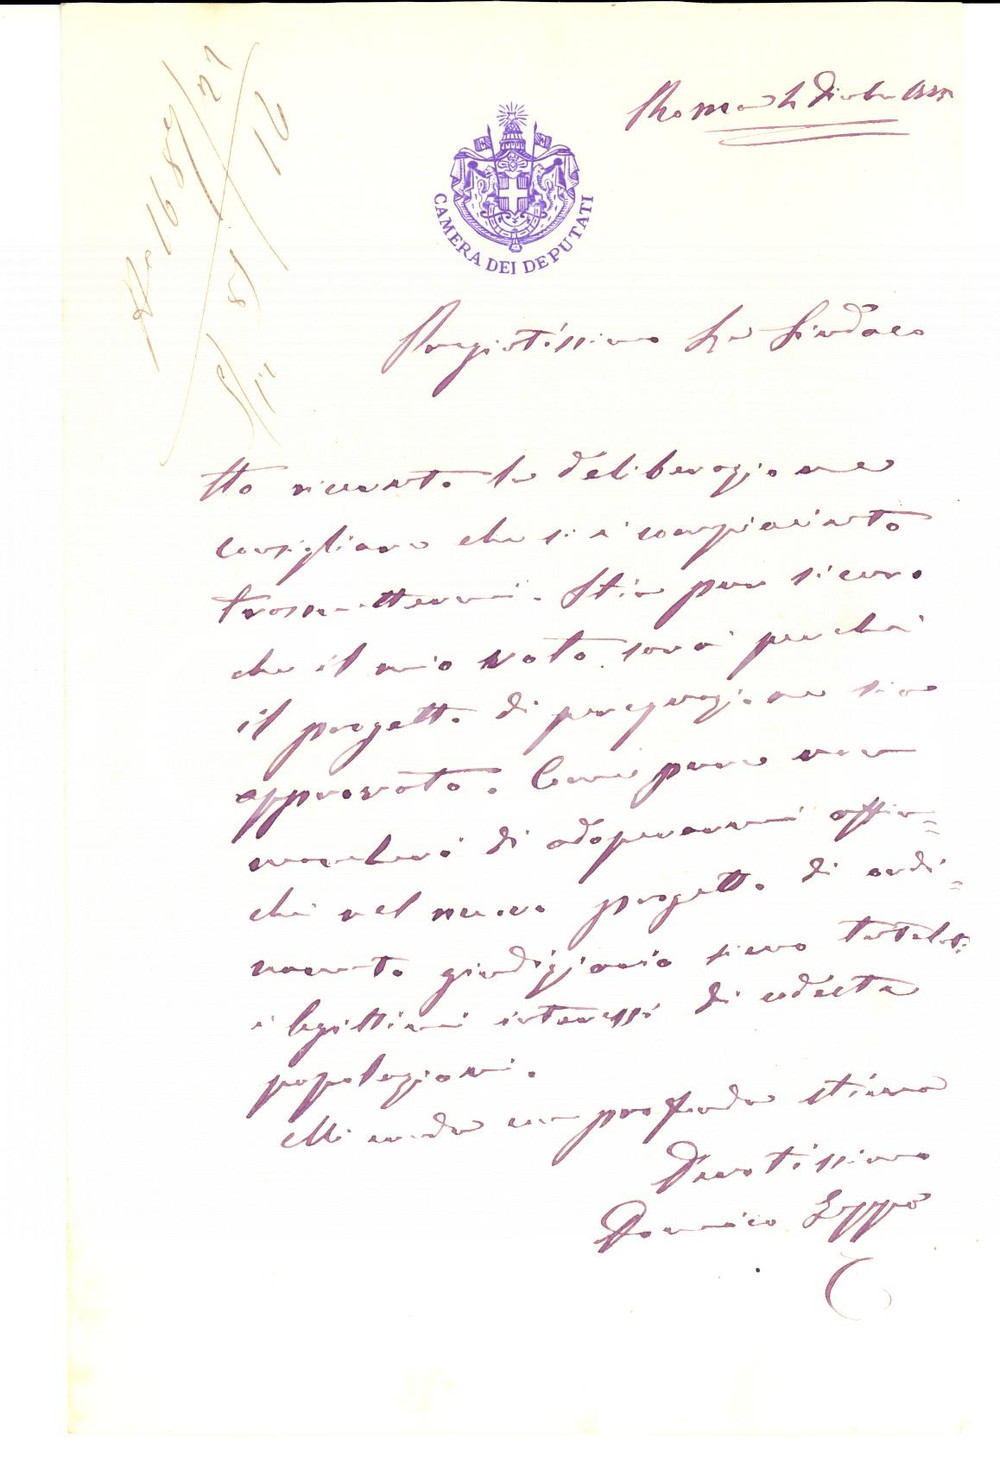 Roma 4 Dicembre 1885
No 1687/27
5/12 85/16
CAMERA DEI DEPUTATI
Pregiatissimo Sr Sindaco
Ho ricevuto la deliberazione
consigliare che si è compiaciuto
trasmettermi. Stia pur sicuro
che il mio voto sarà perché
il progetto di perequazione sia
approvato. Come pure non
mancherò di adoperarmi affin=
ché nel nuovo progetto di ordi=
namento giudiziario sieno tutelati
i legittimi interessi di codesta
popolazioni.
Mi creda con profonda stima
Devotissimo
Domenico Zeppa